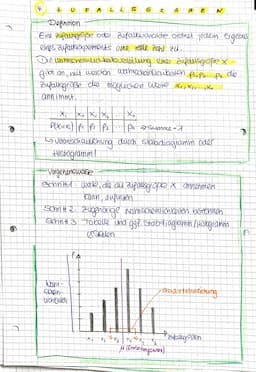 ZUFALLSGRÖSSEN
Definition
Eine Zufallsgröße oder Zufallsvariable ordnet jedem Ergebnis
eines Zufallsexperiments eine reelle Zahl zu.
Die Wahrscheinlichkeitsverteilung einer Zufallsgröße X
gibt an, mit welchen Wahrscheinlichkeiten p₁, p₂, ... pₙ die
Zufallsgröße die möglichen Werte x₁, x₂, ..., xₙ
annimmt.
Xᵢ X₁ X₂ X₃ ... Xₙ
P(X=xᵢ) P₁ P₂ P₃ ... Pₙ → Summe = 1
↳ Veranschaulichung durch Stabdiagramm oder
Histogramm!
Vorgehensweise
Schritt 1: Werte, die die Zufallsgröße X annehmen
kann, aufliesten
Schritt 2: Zugehörige Wahrscheinlichkeiten bestimmen
Schritt 3: Tabelle und ggf. Stabdiagramm/Histogramm
erstellen
Wahr-
schein-
lichkeiten
Standardabweichung
Zufallsgrößen
μ (Erwartungswert)